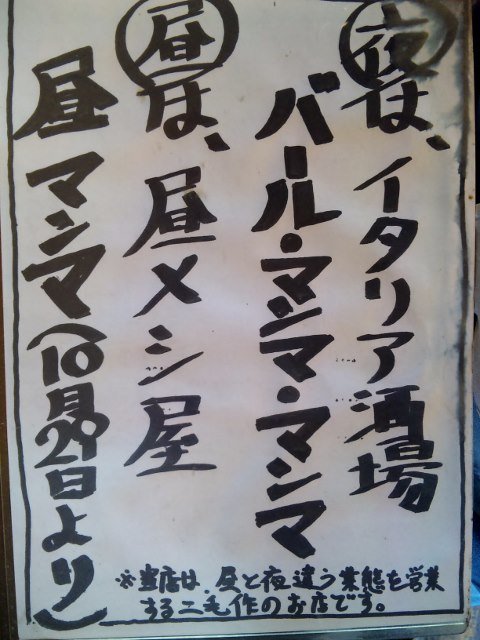 夜は、イタリア酒場
バール・マンマ・マンマ
昼は、昼メシ屋
昼マンマ(10月29日より)
※当店は、昼と夜違う業態を営業
する二毛作のお店です。